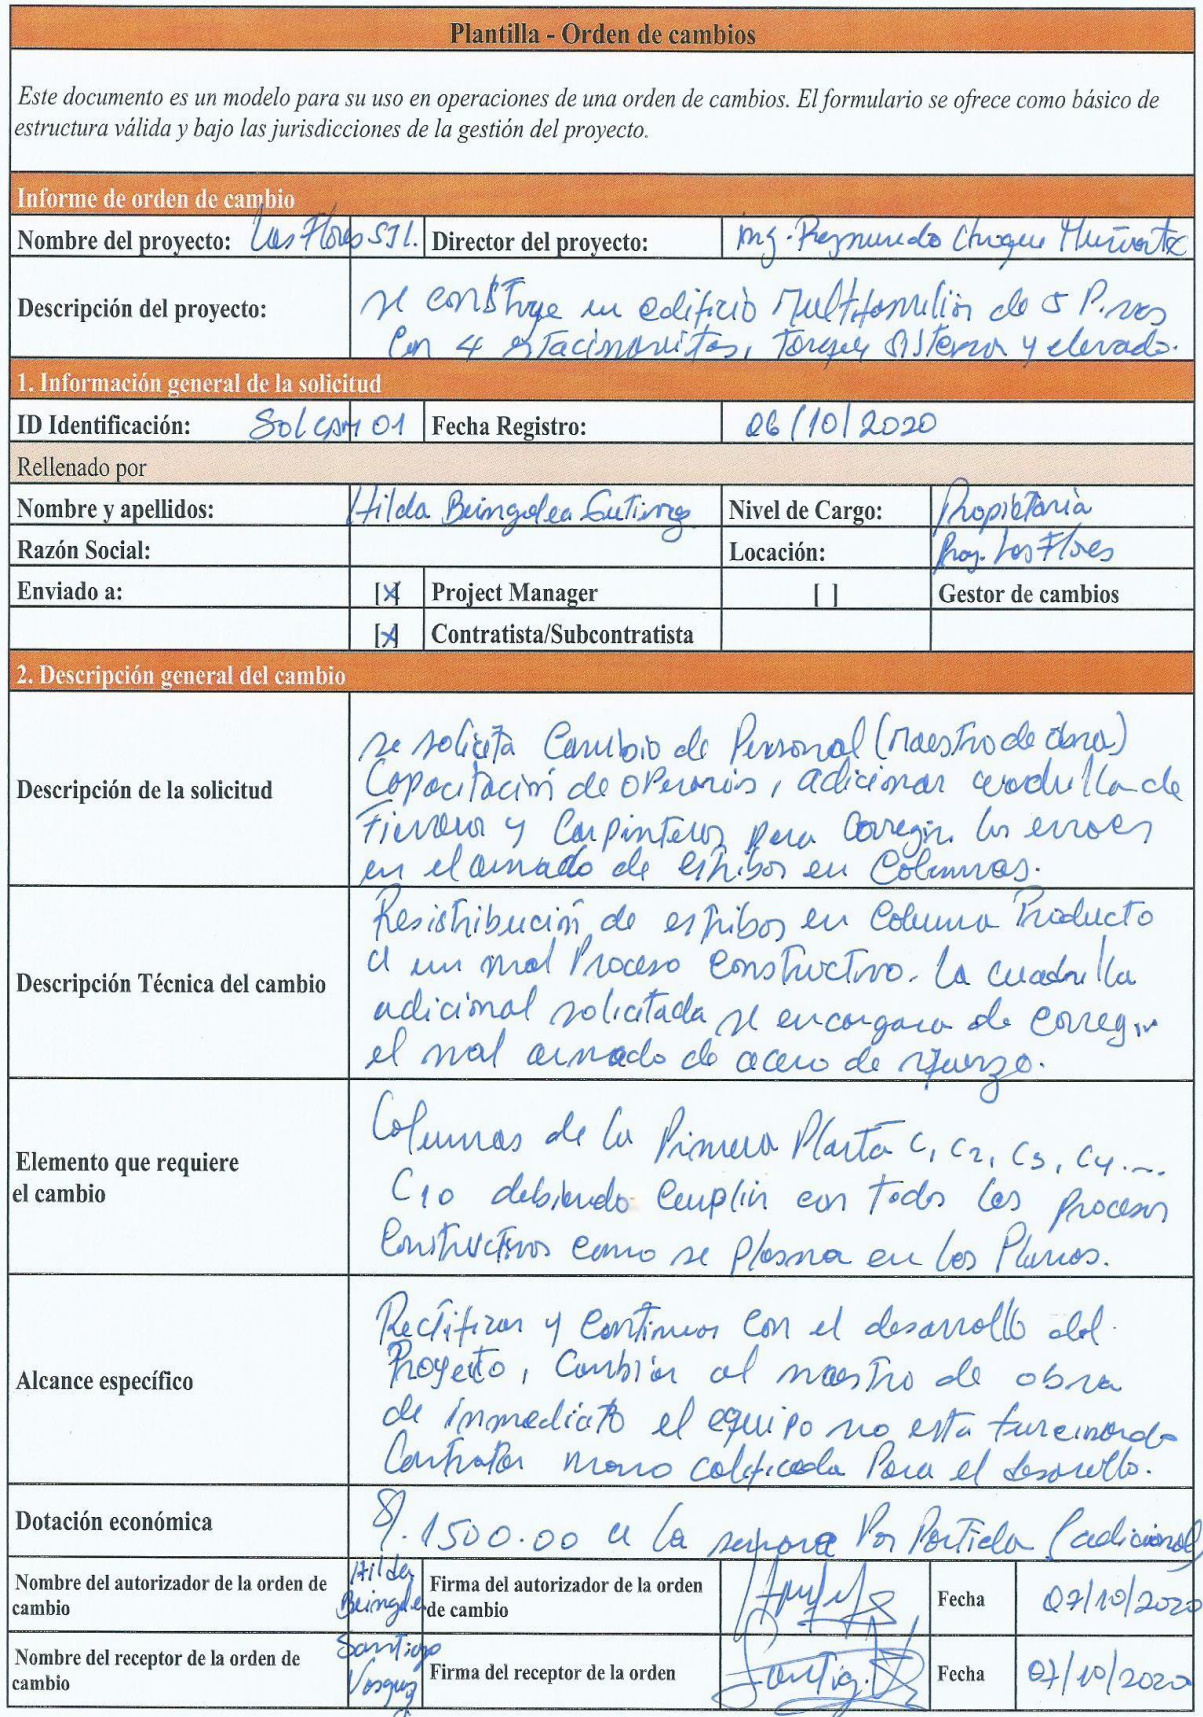 Plantilla - Orden de cambios
Este documento es un modelo para su uso en operaciones de una orden de cambios. El formulario se ofrece como básico de
estructura válida y bajo las jurisdicciones de la gestión del proyecto.
Informe de orden de cambio
Nombre del proyecto: Las Flores SJL. Director del proyecto: Ing. Raymundo Choque
Descripción del proyecto:
se construye un edificio Multifamiliar de 5 Pisos
Con 4 estacionamientos, tanque sisterna y elevado.
1. Información general de la solicitud
ID Identificación: Sol CAM 01 Fecha Registro: 06/10/2020
Rellenado por
Nombre y apellidos: Hilda Beingolea Gutierrez Nivel de Cargo: Propietaria
Razón Social: Locación: Proy. Las Flores
Enviado a: [x] Project Manager [ ] Gestor de cambios
[x] Contratista/Subcontratista
2. Descripción general del cambio
Descripción de la solicitud
se solicita Cambio de Personal (Maestro de obra)
Capacitación de operarios, adicionar cuadrilla de
Fierreros y Carpinteros para Corregir los errores
en el armado de estribos en Columnas.
Descripción Técnica del cambio
Resistribución de estribos en Columna Producto
a un mal Proceso Constructivo. La cuadrilla
adicional solicitada se encargara de corregir
el mal armado de acero de refuerzo.
Elemento que requiere
el cambio
Columnas de la Primera Planta C1, C2, C3, C4....
C10 debiendo Cumplir con todos los procesos
Constructivos como se plasma en los Planos.
Alcance específico
Rectificar y Continuar Con el desarrollo del
Proyecto, Cambiar al maestro de obra
de inmediato el equipo no esta funcionando
Contratar mano calificada Para el desarrollo.
Dotación económica
S/. 1500.00 a la semana Por Partida (adicional)
Nombre del autorizador de la orden de
cambio
Hilda
Beingolea
Firma del autorizador de la orden
de cambio
Fecha 07/10/2020
Nombre del receptor de la orden de
cambio
Santiago
Vasquez
Firma del receptor de la orden
Fecha 07/10/2020